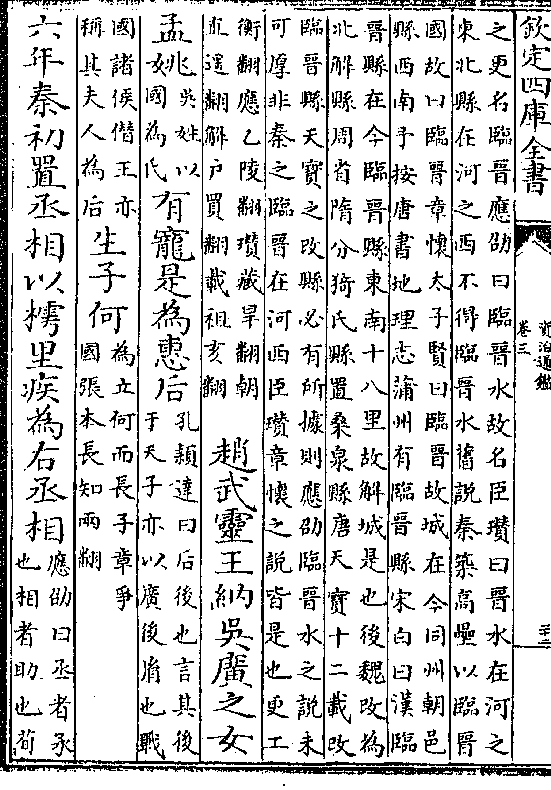 欽定四庫全書
資治通鑑
卷三
之更名臨晉應劭曰臨晉水故名臣瓚曰晉水在河之
東北縣在河之西不得臨晉水舊説秦築高壘以臨晉
國故曰臨晉章懷太子賢曰臨晉故城在今同州朝邑
縣西南予按唐書地理志蒲州有臨晉縣宋白曰漢臨
晉縣在今臨晉縣東南十八里故解城是也後魏改為
北解縣周省隋分猗氏縣置桑泉縣唐天寶十二載改
臨晉縣天寶之改縣必有所據則應劭臨晉水之説未
可厚非秦之臨晉在河西臣瓚章懷之説皆是也更工
衡翻應乙陵翻瓚藏旱翻朝
直遥翻解户買翻載祖亥翻
趙武靈王納吳廣之女
孟姚
吳姓以
姚國為氏
有寵是為惠后
孔穎達曰后後也言其後
于天子亦以廣後胤也戰
國諸侯僭王亦
稱其夫人為后
生子何
為立何而長子章爭
國張本長知兩翻
六年秦初置丞相以樗里疾為右丞相
應劭曰丞者承
也相者助也荀